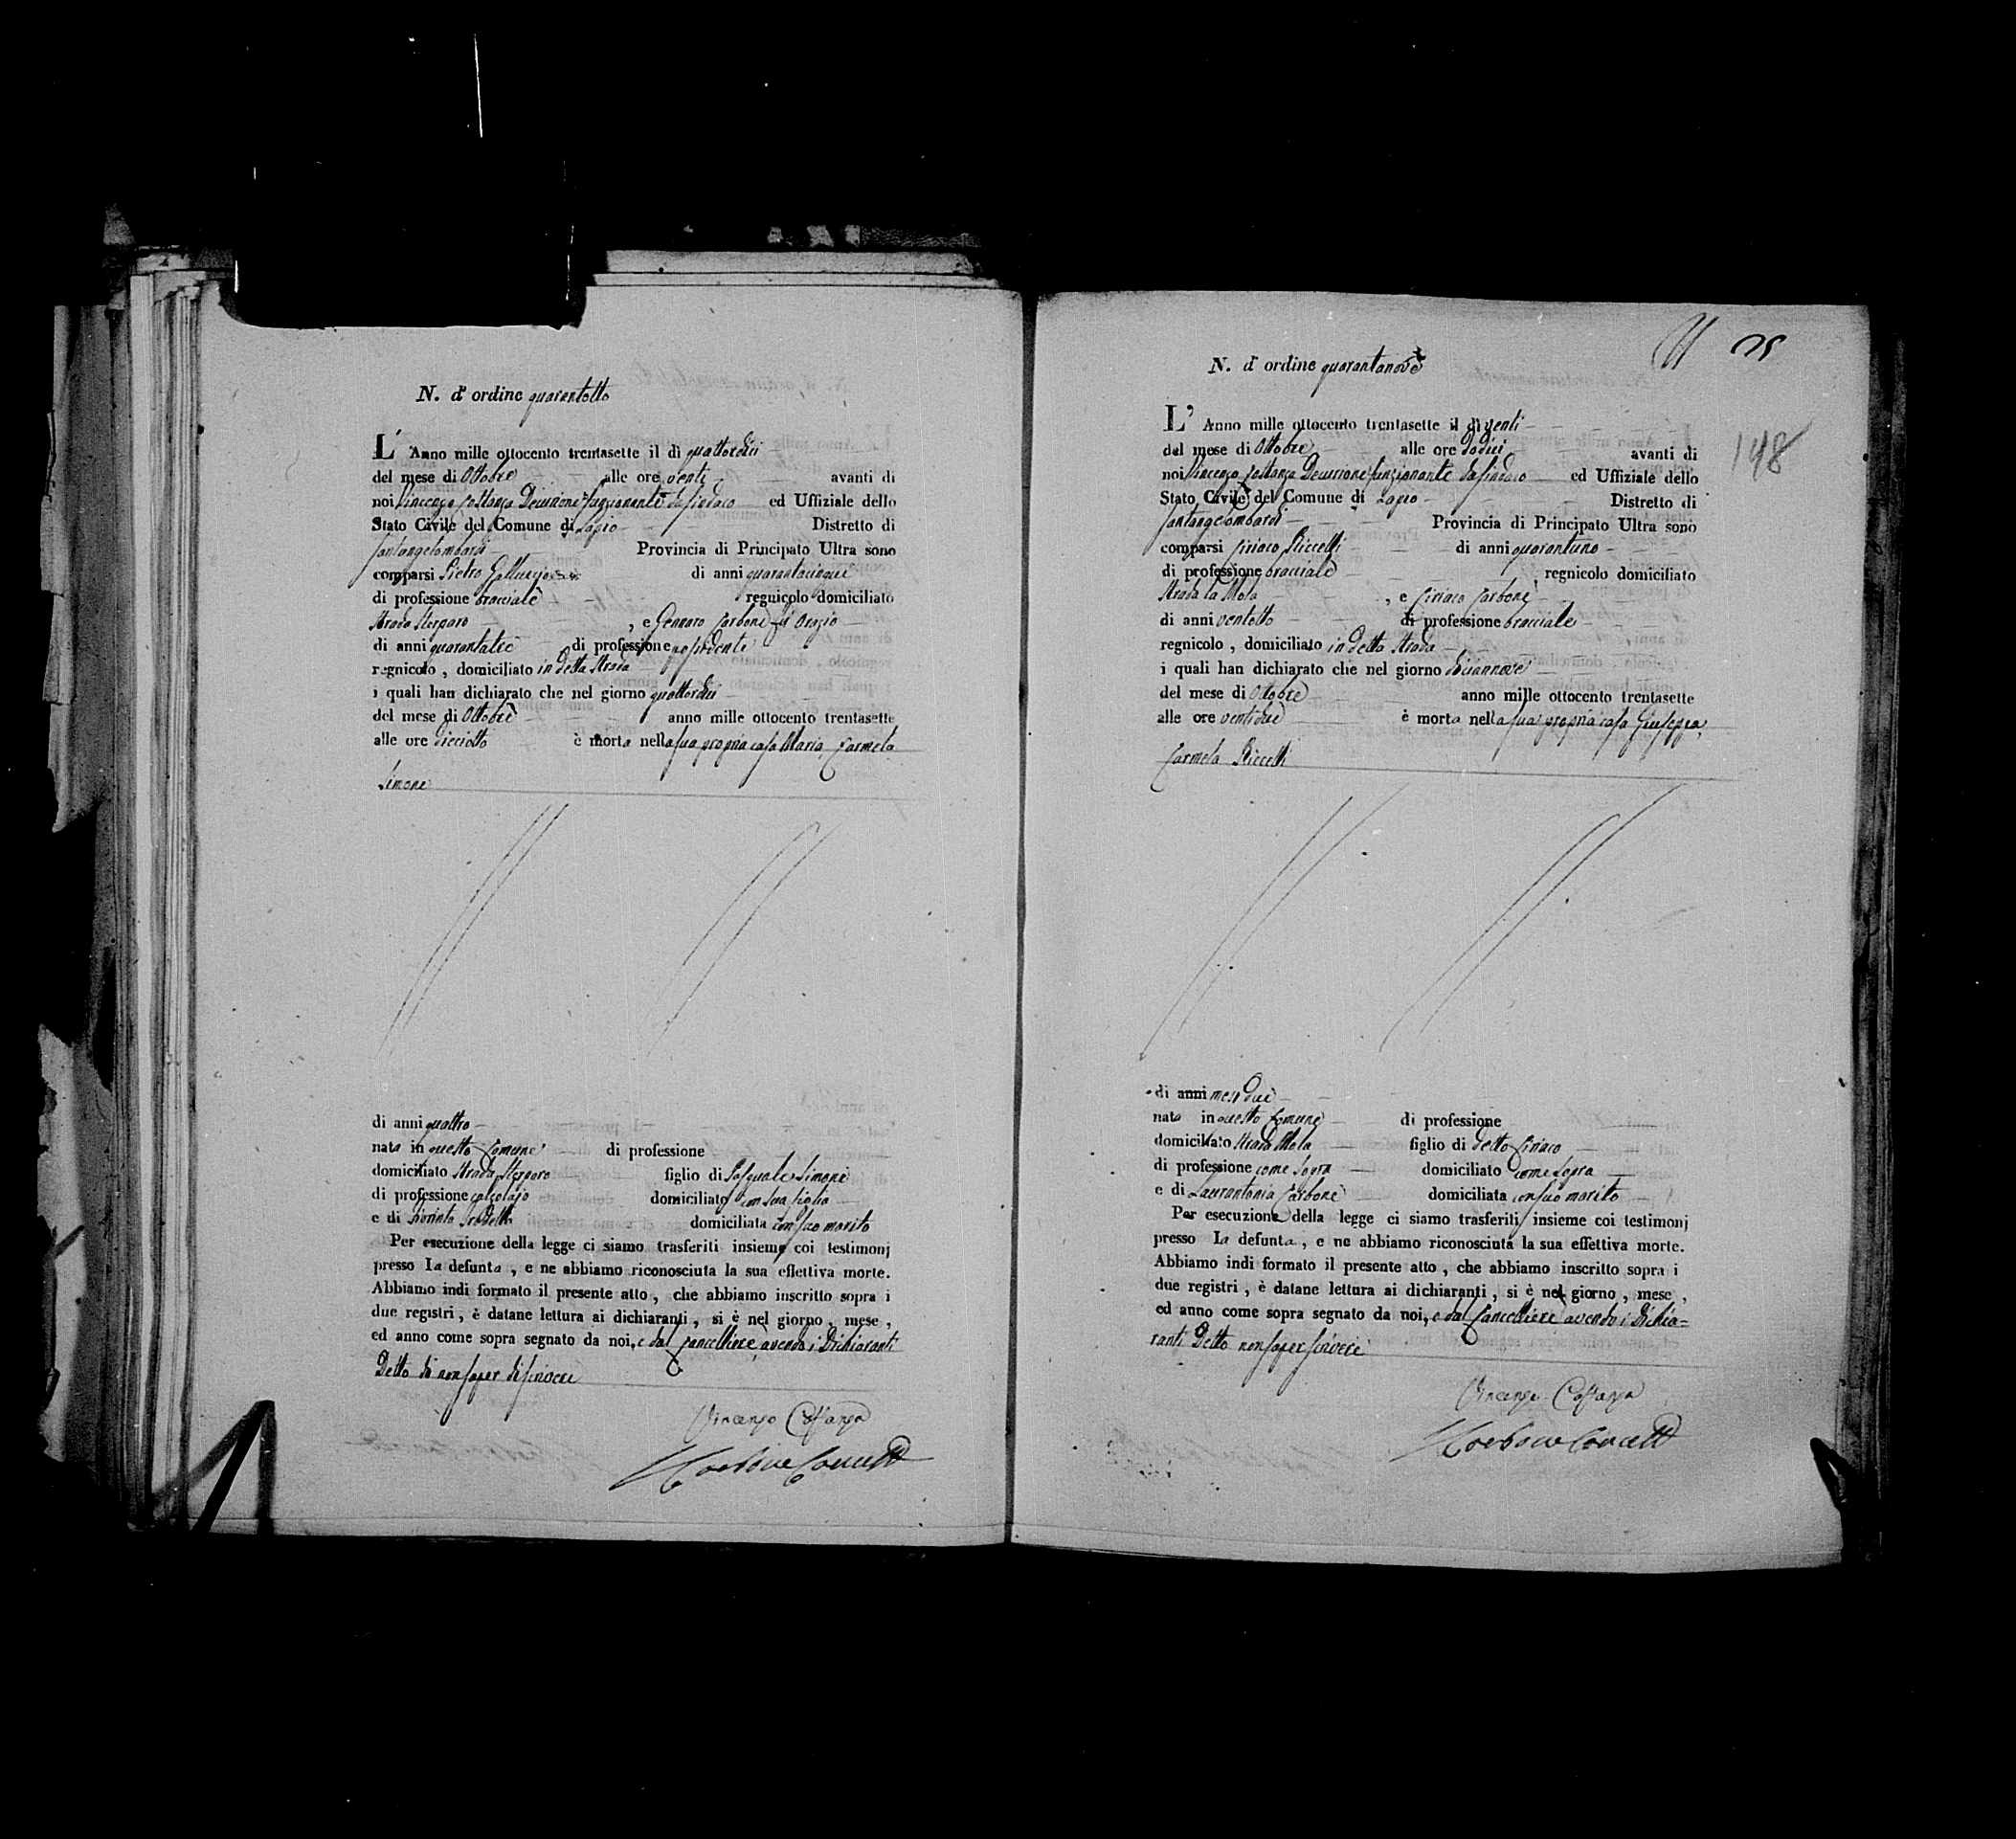 N. d' ordine quarantotto
L' Anno mille ottocento trentasette il dì quattordici
del mese di Ottobre alle ore venti avanti di
noi Vincenzo Costanza Decurione funzionante da Sindaco ed Uffiziale dello
Stato Civile del Comune di Lapio Distretto di
Santangelombardi Provincia di Principato Ultra sono
comparsi Pietro Galluccio di anni quarantacinque
di professione bracciale regnicolo domiciliato
Strada Sterparo , e Gennaro Carbone fu Orazio
di anni quarantatre di professione possidente
regnicolo , domiciliato in detta Strada
i quali han dichiarato che nel giorno quattordici
del mese di Ottobre anno mille ottocento trentasette
alle ore dieciotto è morta nella sua propria casa Maria, Carmela
Simone
di anni quattro
nata in questo Comune di professione
domiciliato Strada Sterparo figlio di Pasquale Simone
di professione calzolajo domiciliato con sua figlia
e di domiciliata con suo marito
Per esecuzione della legge ci siamo trasferiti insieme coi testimonj
presso la defunta , e ne abbiamo riconosciuta la sua effettiva morte.
Abbiamo indi formato il presente atto , che abbiamo inscritto sopra i
due registri , è datane lettura ai dichiaranti , si è nel giorno , mese ,
ed anno come sopra segnato da noi, e dal Cancelliere avendo i Dichiaranti
Detto di non saper di scrivere
Vincenzo Costanza
Carbone Cancell
25
148
N. d' ordine quarantanove
L' Anno mille ottocento trentasette il dì venti
del mese di Ottobre alle ore dodici avanti di
noi Vincenzo Costanza Decurione funzionante da Sindaco ed Uffiziale dello
Stato Civile del Comune di Lapio Distretto di
Santangelombardi Provincia di Principato Ultra sono
comparsi Ciriaco Riccelli di anni quarantuno
di professione bracciale , regnicolo domiciliato
Strada la Mola , e Ciriaco Carbone
di anni ventotto di professione bracciale
regnicolo , domiciliato in detta Strada
i quali han dichiarato che nel giorno diciannove
del mese di Ottobre anno mille ottocento trentasette
alle ore ventidue è morta nella sua propria casa Giuseppa,
Carmela Riccelli
di anni mesi due
nata in questo Comune di professione
domiciliato Strada Mola figlio di detto Ciriaco
di professione come sopra domiciliato come sopra
e di Laurantonia Carbone domiciliata con suo marito
Per esecuzione della legge ci siamo trasferiti insieme coi testimonj
presso la defunta , e ne abbiamo riconosciuta la sua effettiva morte.
Abbiamo indi formato il presente atto , che abbiamo inscritto sopra i
due registri , è datane lettura ai dichiaranti , si è nel giorno , mese ,
ed anno come sopra segnato da noi, e dal Cancelliere avendo i Dichia=
ranti Detto non saper scrivere
Vincenzo Costanza
Carbone Cancell